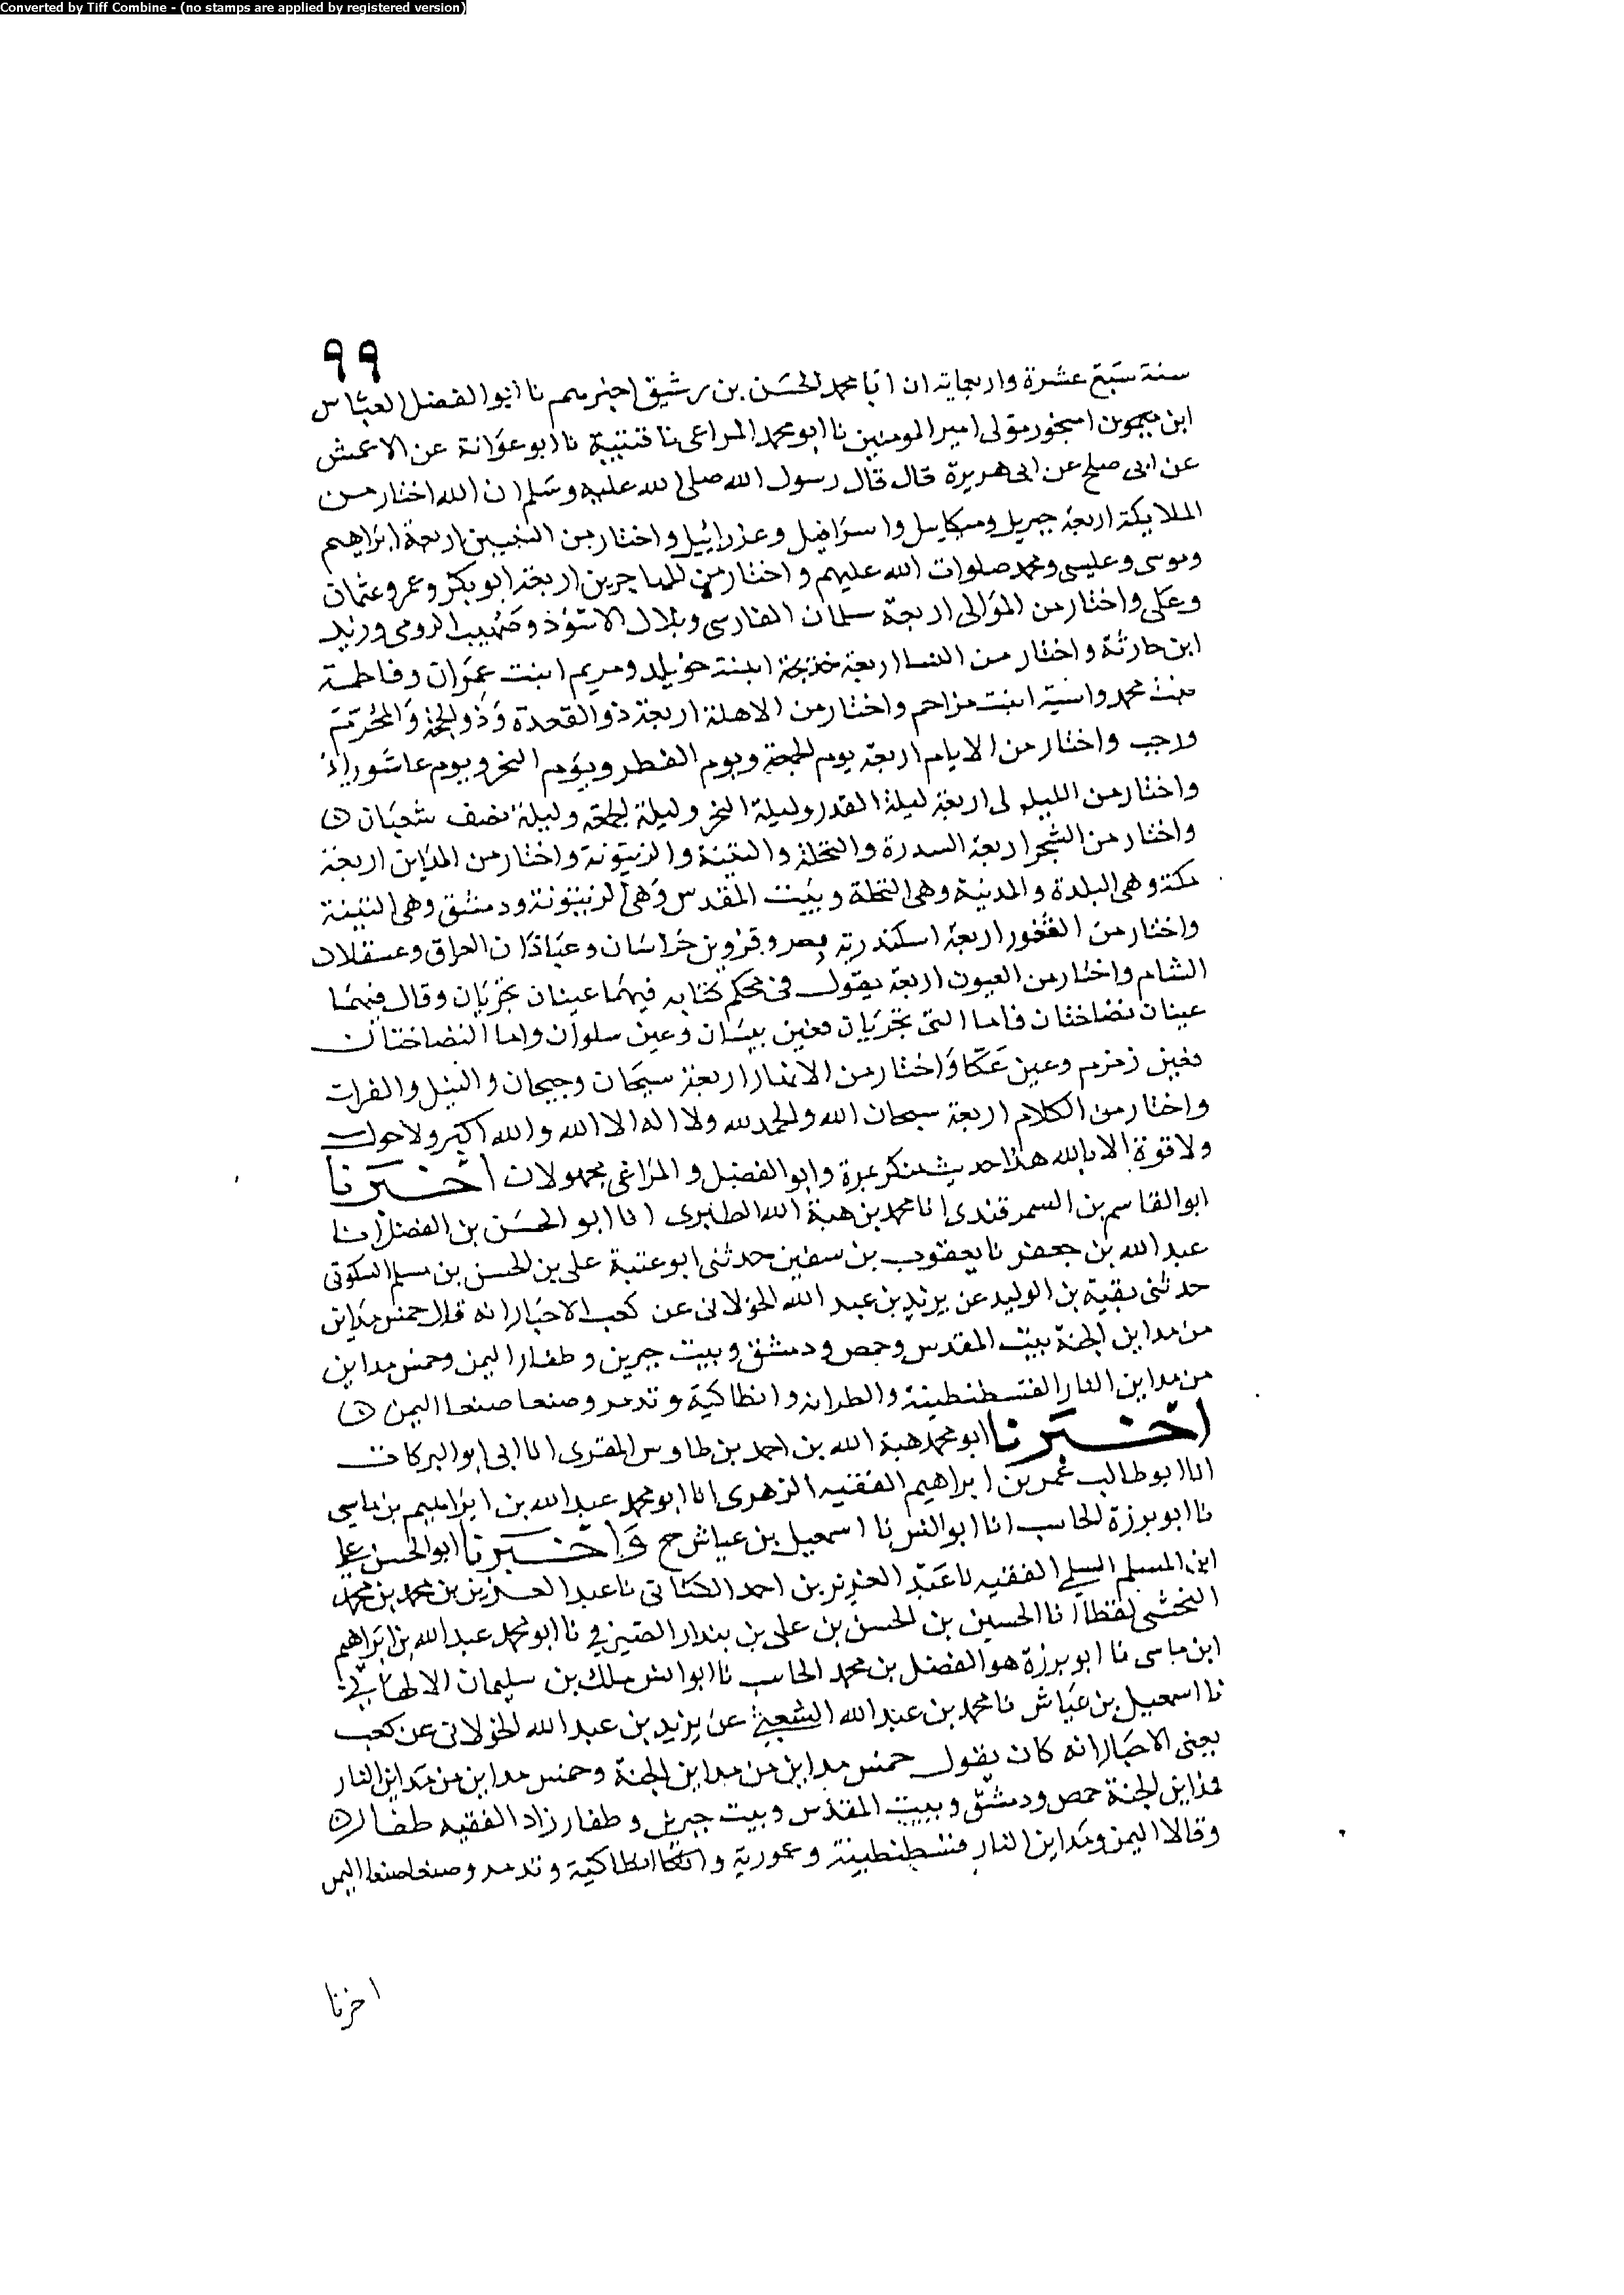 Converted by Tiff Combine - (no stamps are applied by registered version)
٩٩
سنة سَبْع عشرة واربعماية ان ابا محمد الحسَن بن رشيق اخبرهم نا ابو الفضل العبّاس
ابن ميمون امنجور مَولى امير المومنين نا ابو محمد المراغى نا قتيبة نا ابو عوَانة عن الاعمش
عن ابى صلح عن ابى هريرة قال قال رسول الله صلى الله عليه وسَلم ان الله اختار من
الملايكة اربعة جبريل وميكايل واسرَافيل وعزرائيل واختار من النبيين اربعة ابرَاهيم
وموسى وعيسى ومحمد صلوات الله عليهم واختار من المهاجرين اربعة ابو بكر وعمر وعثمان
وعَلى واختار من الموَالى اربعة سلمان الفارسى وبلال الاسْوَد وصُهيب الرومى وزيد
ابن حارثة واختار من النسا اربعة خديجة ابنة خوَيلد ومريم ابنت عِمرَان وفاطمة
بنت محمد واسية ابنت مزاحم واختار من الاهلة اربعة ذو القعدة وَذو الحجة وَالمُحَرّم
ورجب واختار من الايام اربعة يوم الجمعة ويوم الفطر ويَوم النحر ويوم عاشورَاء
واختار من الليالى اربعة ليلة القدر وليلة النحر وليلة الجمعة وليلة نصف شعبَان
واختار من الشجر اربعة السدرة والنخلة والتينة والزيتونة واختار من المدَاين اربعة
مكة وهى البلدة والمدينة وهى النخلة وبيَت المقدس وَهى الزيتونة ودمشق وهى التينة
واختار من الثغور اربعة اسكندرية مصر وقزوين خرَاسَان وعبَاذَان العراق وعسقلان
الشام واختار من العيون اربعة يقول فى محكم كتَابه فيهمَا عينان تجريَان وقال فيهمَا
عينان نضاختان فاما التى تجريَان فعين بيسَان وعين سلوَان واما النضاختان
فعين زمزم وعين عَكّا وَاختار من الانهار اربعة سيحَان وجيحان والنيل والفرات
واختار من الكلام اربعة سبحان الله والحمد لله ولا اله الا الله والله اكبر ولا حول
ولا قوة الا بالله هذا حديث منكر بمرة وابو الفضل والمرَاغى مجهولان اخْـبَرَنا
ابو القاسم بن السمرقندى انا محمد بن هبة الله الطبرى انا ابو الحسَن بن الفضل انا
عبد الله بن جعفر نا يعقوب بن سفين حدثنى ابو عتبة على بن الحسن بن مسلم السكونى
حدثنى بقية بن الوليد عن يزيد بن عبد الله الخولانى عن كعب الاحبَار انه قال خمس مدَاين
من مداين الجنة بيت المقدس وحمص ودمشق وبيت جبرين وظفار اليمن وخمس مداين
من مداين النار القسطنطينة والطرانه وانطاكية وتدمر وصنعا صنعا اليمن
اخْـبَرَنا ابو محمد هبة الله بن احمد بن طاوس المقرى انا ابى ابو البركات
انا ابو طالب عُمر بن ابراهيم الفقيه الزهرى انا ابو محمد عبد الله بن ابرَاهيم بن ماسى
نا ابو برزة الحاسب انا ابو انس نا اسمعيل بن عياش ح وَاخْـبَرنا ابو الحسن على
ابن المسلم السلمى الفقيه نا عَبْد العزيز بن احمد الكتانى نا عبد العزيز بن محمد بن محمد
النخشبى لفظا انا الحسين بن الحسن بن على بن بندار الصَيرفى نا ابو محمد عبد الله بن ابرَاهيم
ابن ماسى نا ابو برزة هو الفضل بن محمد الحاسب نا ابو انس ملك بن سليمان الالهَانىّ
نا اسمعيل بن عيَاش نا محمد بن عبد الله الشعيثى عن يزيد بن عبد الله الخولانى عن كعب
يعنى الاحبَار انه كان يقول خمس مداين من مداين الجنة وخمس مداين من مَداين النار
فمداين الجنة حمص ودمشق وبيت المقدَس وبيت جبرين وظفار زاد الفقيه ظفار
وقالا اليمن ومَداين النار قسطنطينة وعمورية وانطاكية وتدمر وصنعا صنعا اليمن
اخبرنا